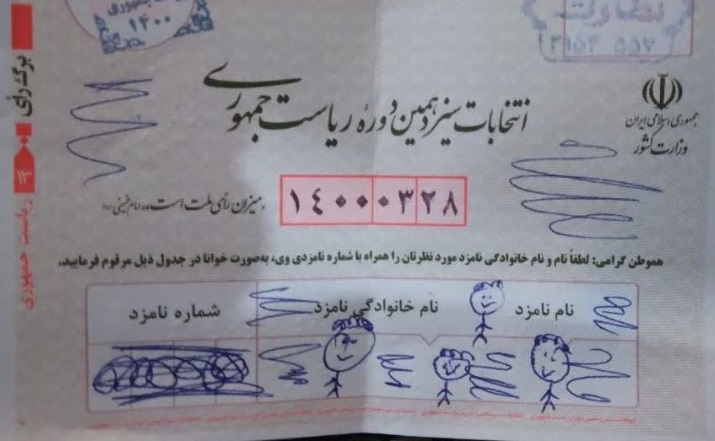 ۱۴۰۰
انتخابات سیزدهمین دوره ریاست جمهوری
جمهوری اسلامی ایران
وزارت کشور
میزان رأی ملت است
۱۴۰۰۰۳۲۸
هموطن گرامی: لطفاً نام و نام خانوادگی نامزد مورد نظرتان را همراه با شماره نامزدی وی، به‌صورت خوانا در جدول ذیل مرقوم فرمایید.
نام نامزد
نام خانوادگی نامزد
شماره نامزد
برگ رأی
۱۳
ریاست جمهوری